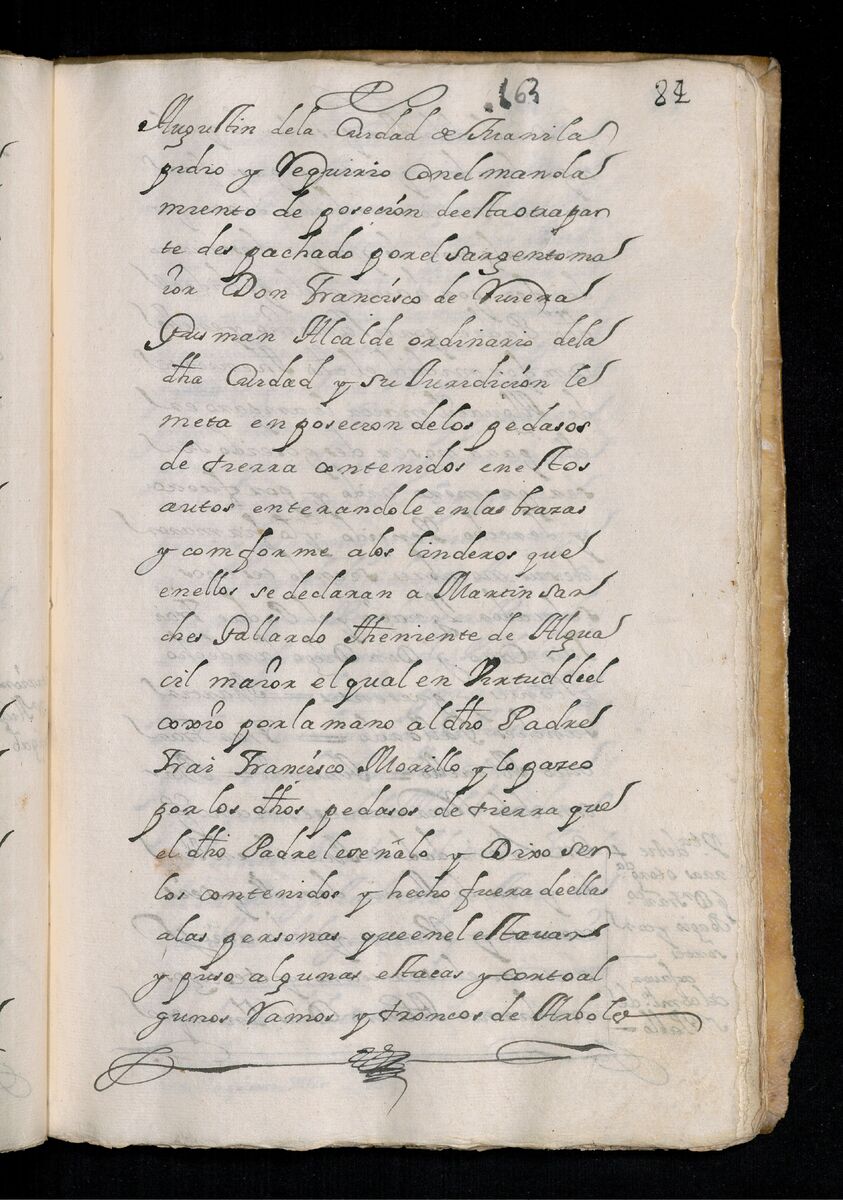 163
84
Augustin dela Ciudad de Manila
pidio y Requirio Conel manda
miento de poseción de esta otra par
te despachado por el sargento ma
ior Don Francisco de Rivera
Gusman Alcalde ordinario dela
dha Ciudad y su Juridición le
meta en posecion delos pedasos
de tierra contenidos en estos
autos enterandole en las brazas
y comforme alos linderos que
enellos se declaran a Martin san
ches Gallardo Theniente de Algua
cil maior el qual en Virtud de el
coxio por la mano al dho Padre
Frai Francisco Morillo y lo paseo
por los dhos pedasos de tierra que
el dho Padre le señalo y Dixo ser
los contenidos y hecho fuera de ellas
alas personas que en el estavan
y puso algunas estacas y corto al
gunos Ramos y troncos de Arboles